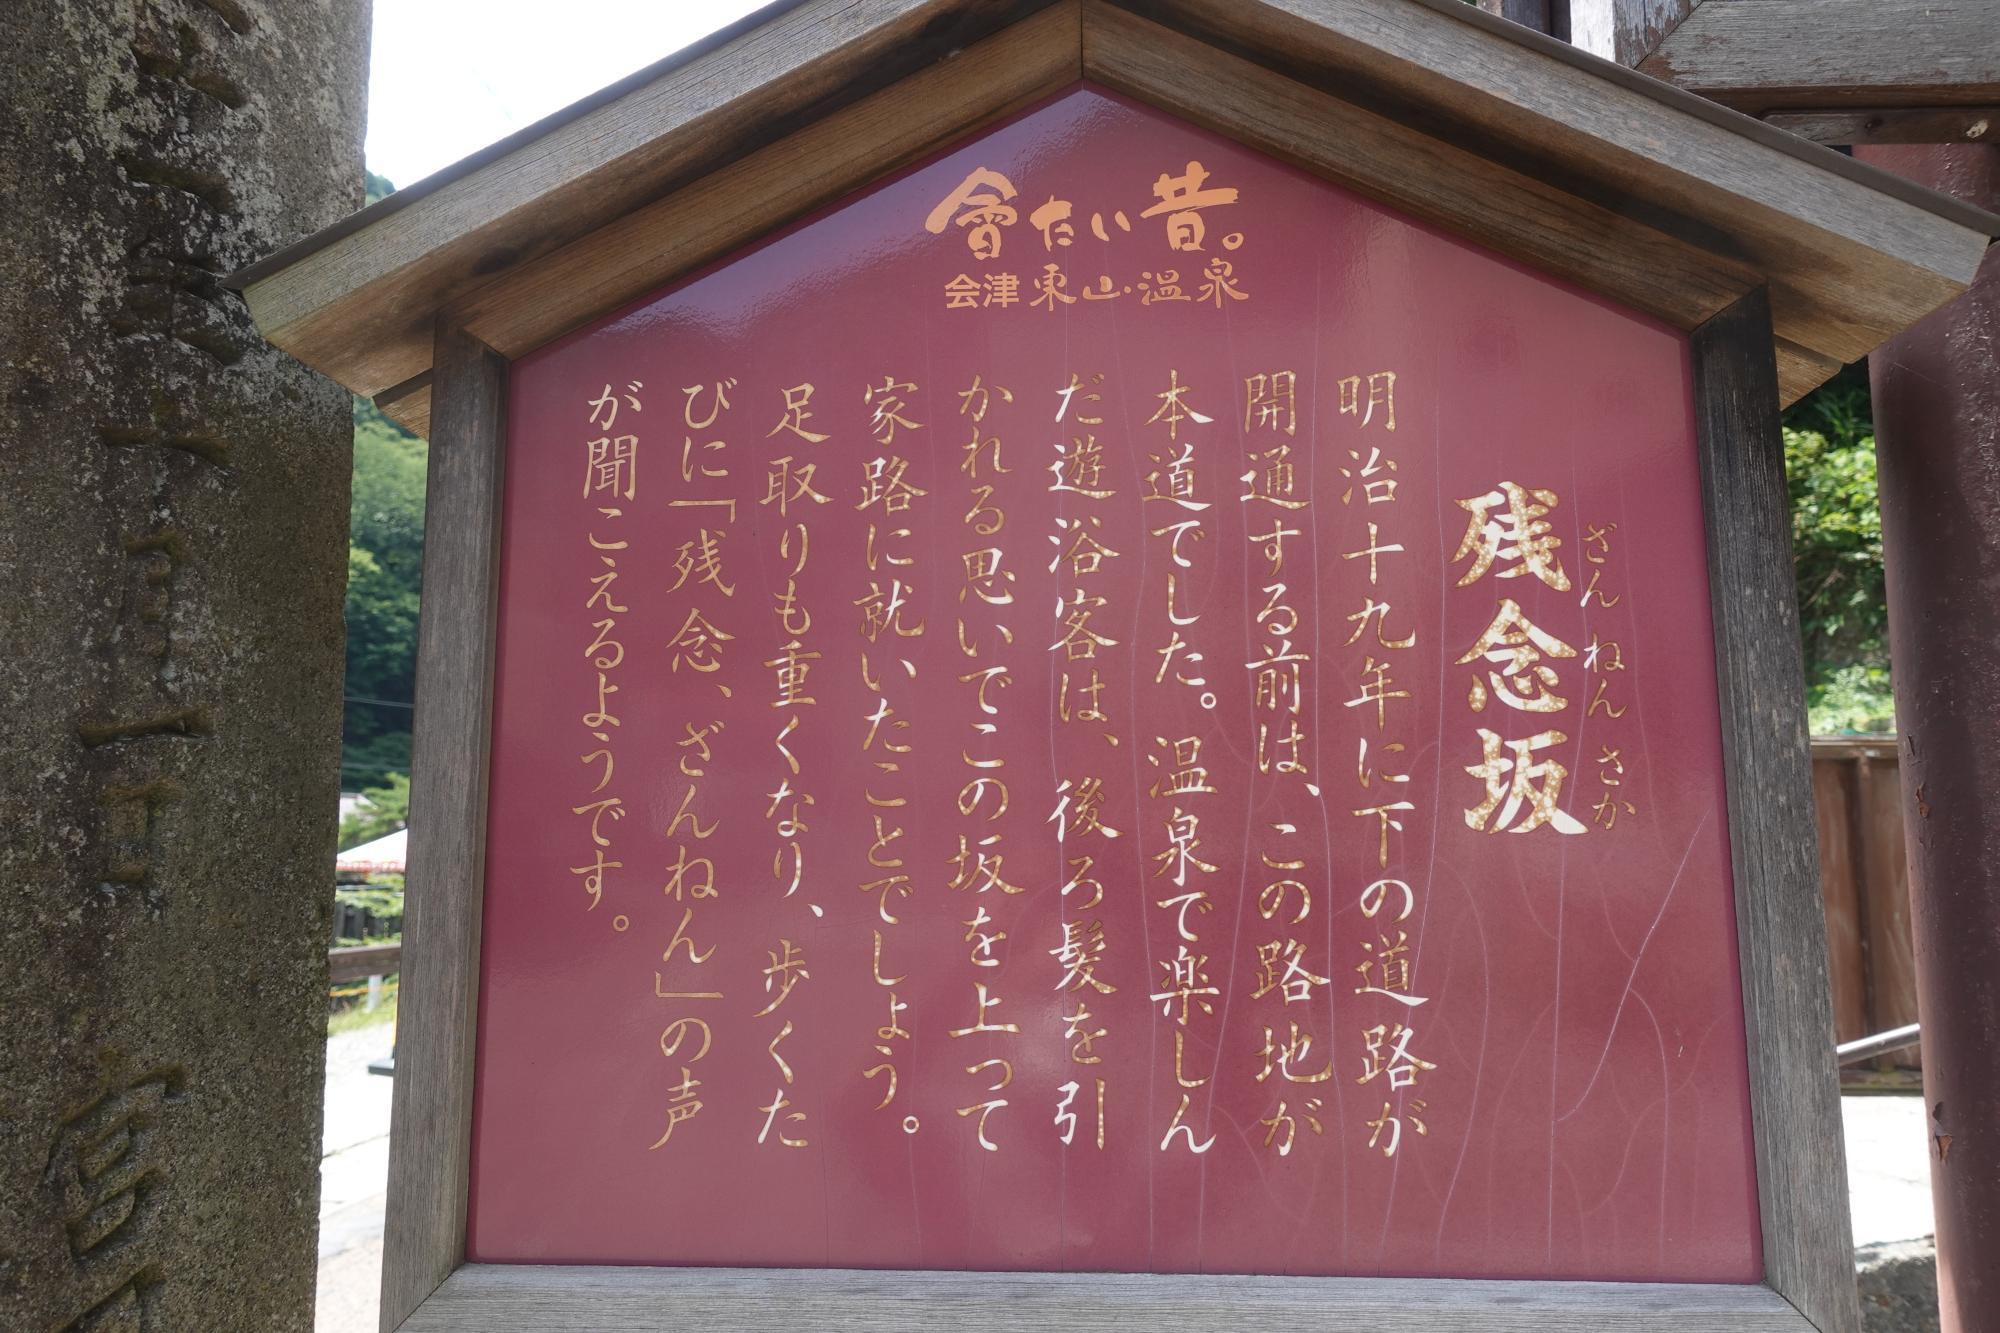 會たい昔。
会津東山温泉
残念坂
ざんねんさか
明治十九年に下の道路が
開通する前は、この路地が
本道でした。温泉で楽しん
だ遊浴客は、後ろ髪を引
かれる思いでこの坂を上って
家路に就いたことでしょう。
足取りも重くなり、歩くた
びに「残念、ざんねん」の声
が聞こえるようです。